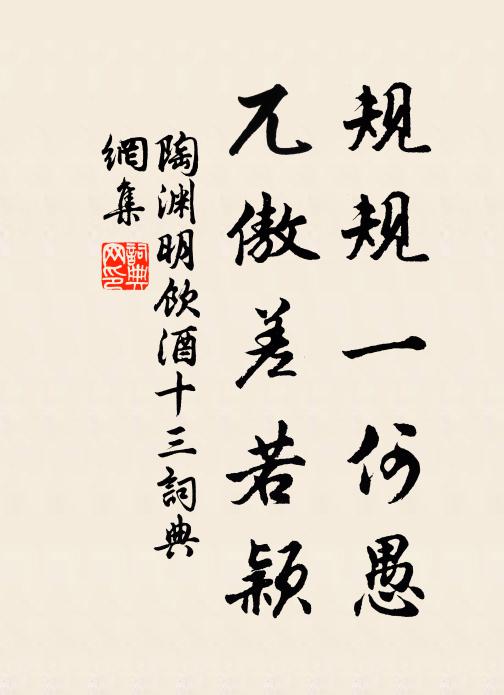 規規一何愚
兀傲差若穎
陶淵明飲酒十三詞典
網集
詞典
网印